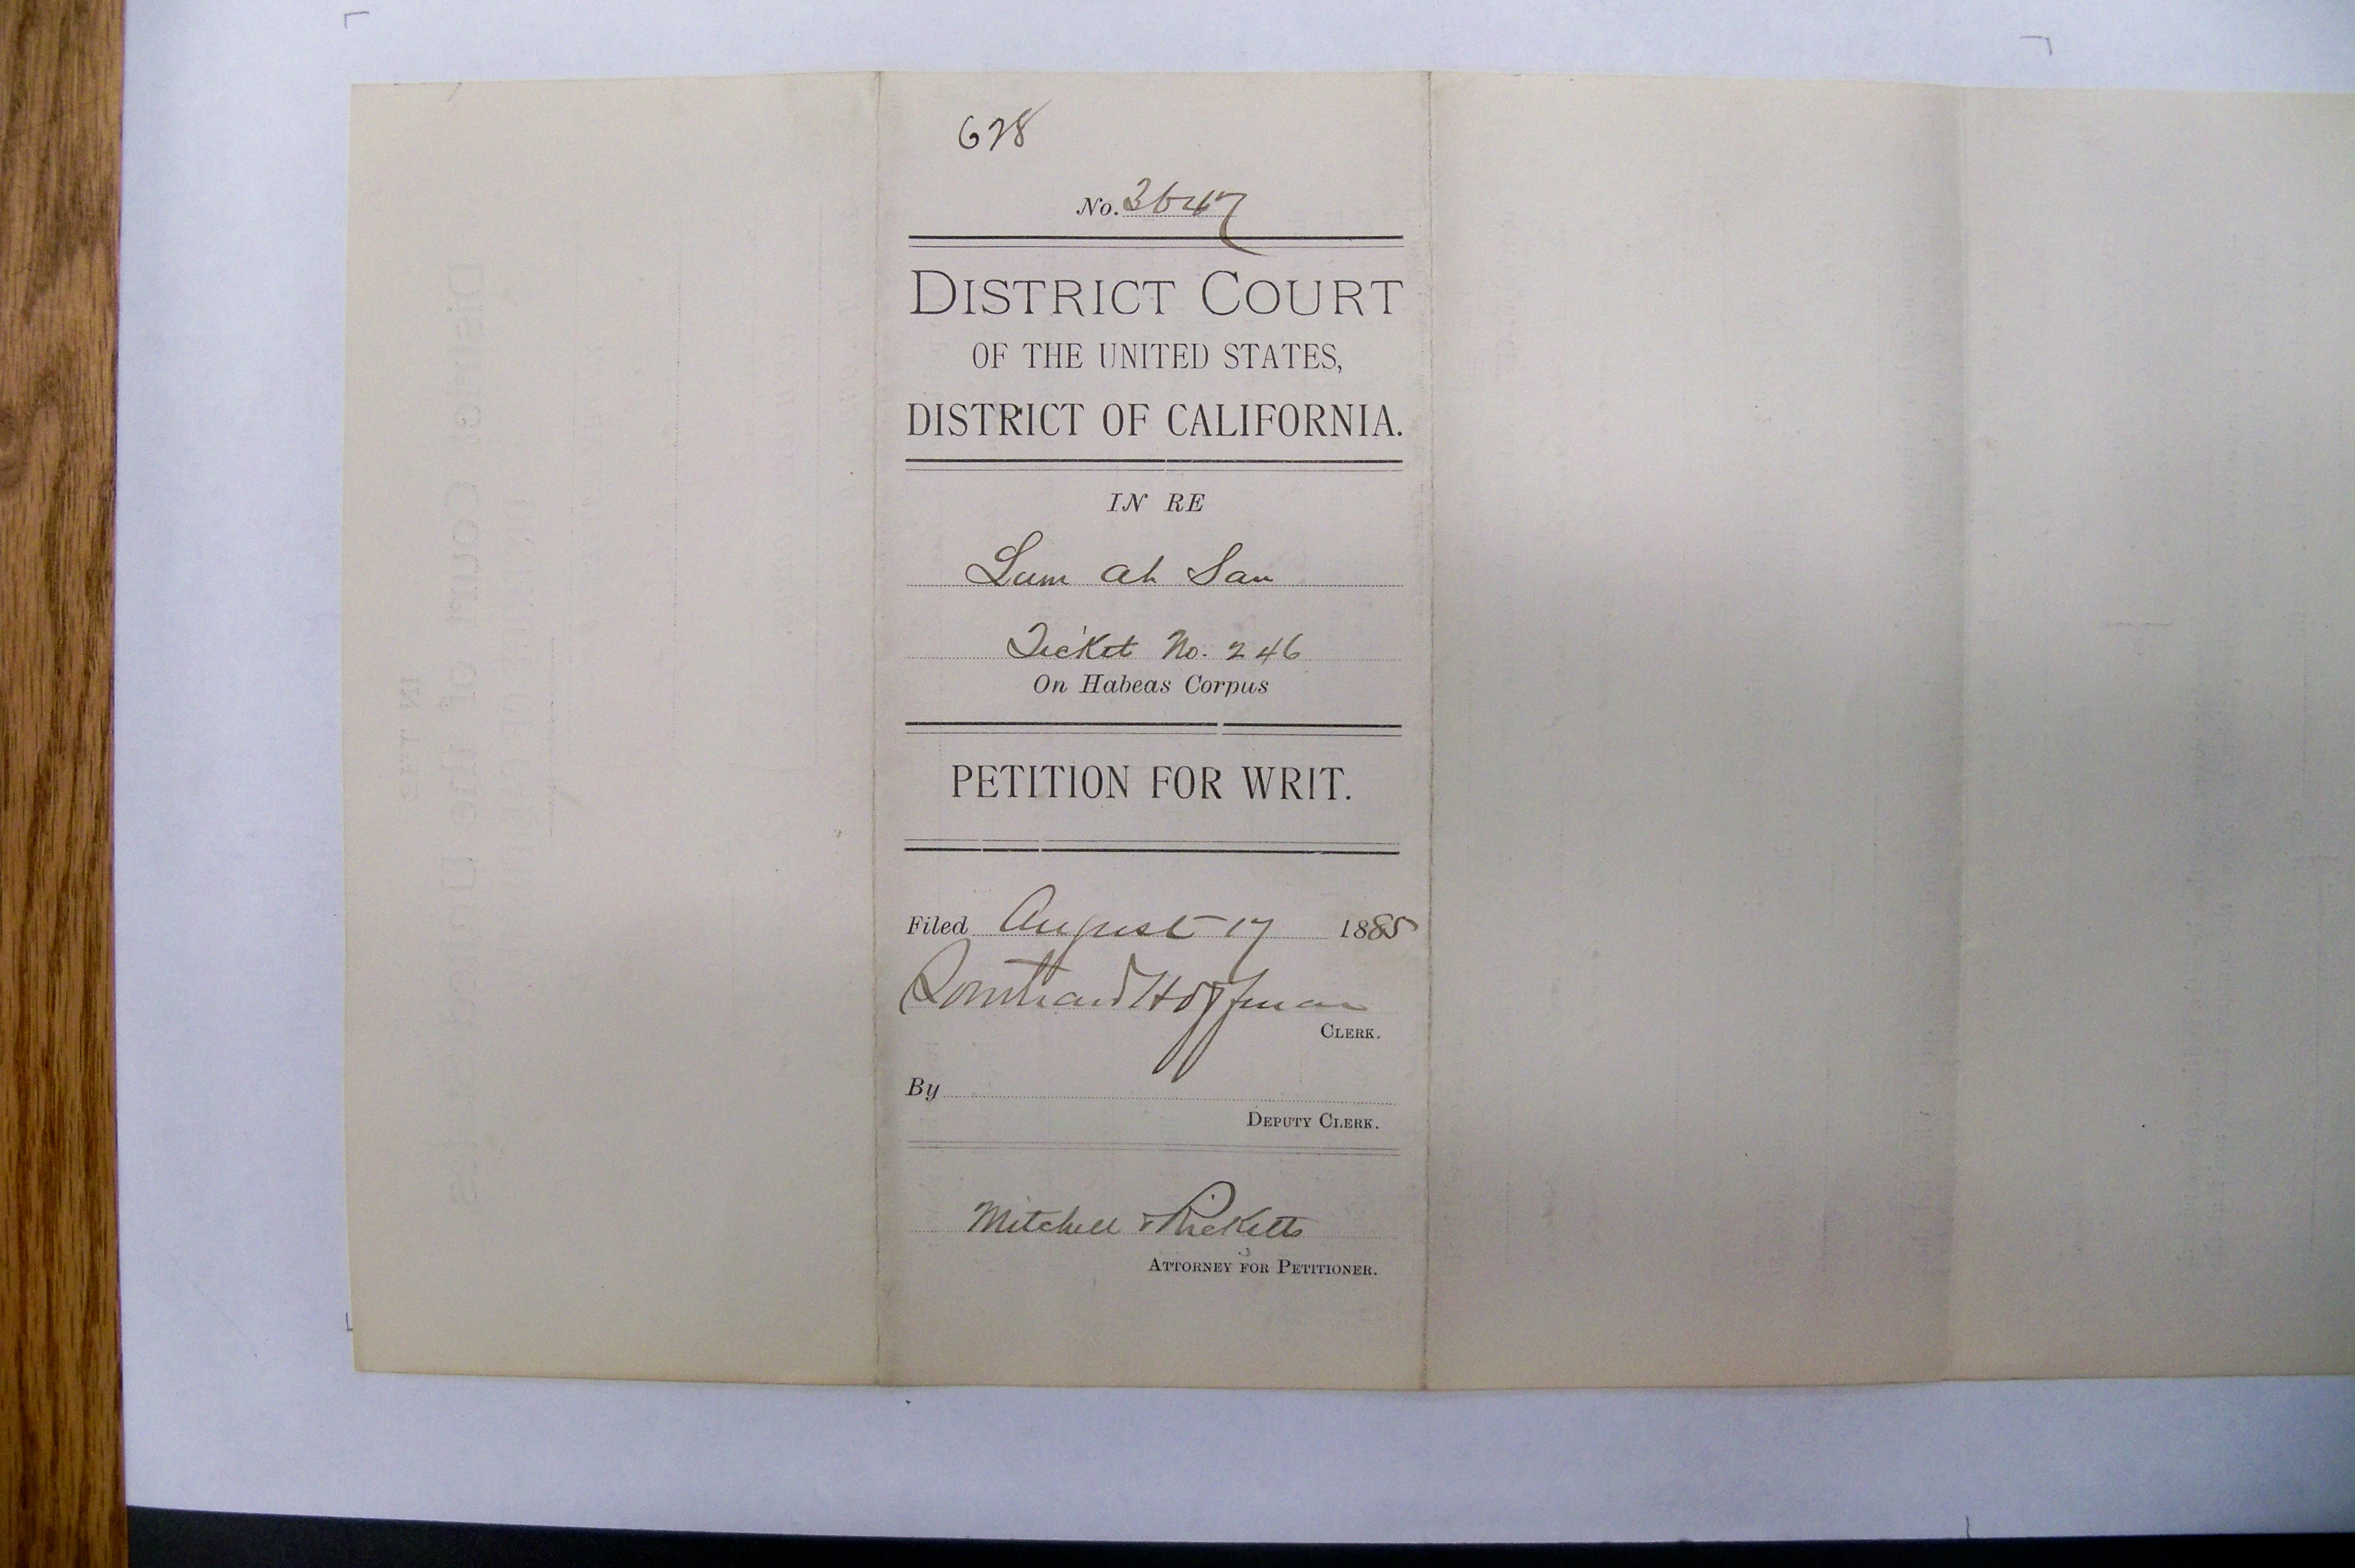 678
No. 3647
DISTRICT COURT
OF THE UNITED STATES,
DISTRICT OF CALIFORNIA.
IN RE
Lum Ah San
Ticket No. 246
On Habeas Corpus
PETITION FOR WRIT.
Filed August 17 1885
Southard Hoffman
CLERK.
By
DEPUTY CLERK.
Mitchell & Ricketts
ATTORNEY FOR PETITIONER.